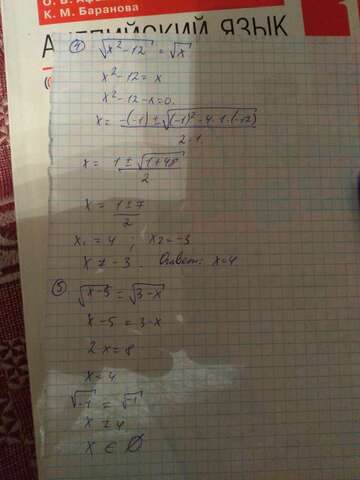 О. В. Афа
К. М. Баранова
АНГЛИЙСКИЙ ЯЗЫК
④ √(x²-12) = √x
x²-12 = x
x²-12-x=0
x = (-(-1) ± √((-1)²-4·1·(-12)))/(2·1)
x = (1 ± √(1+48))/2
x = (1±7)/2
x₁ = 4 ; x₂ = -3
x ≠ -3. Ответ: x=4
⑤ √(x-5) = √(3-x)
x-5 = 3-x
2x=8
x=4
√-1 = √-1
x ≠ 4
x ∈ ∅